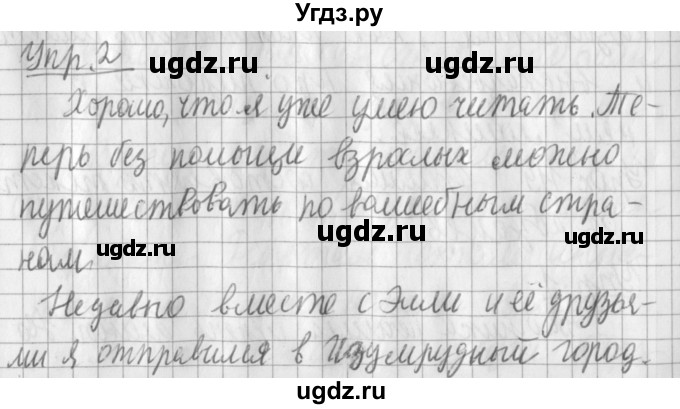 Угдз.ру
Упр. 2
ugdz.ru ugdz.ru
Хорошо, что я уже умею читать. Те-
перь без помощи взрослых можно
путешествовать по волшебным стра-
ugdz.ru ugdz.ru
нам.
Недавно вместе с Элли и её друзья-
ми я отправился в Изумрудный город.
ugdz.ru